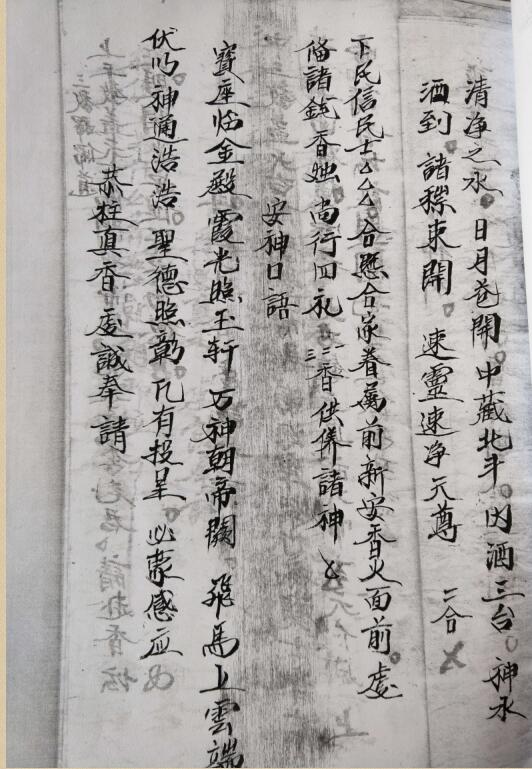 清淨之水 日月花開 中藏北斗 内洒三台 神水
洒到 諸穢束開 速靈速淨天尊 二合
下民信民士厶厶 合懸合家眷屬 前新安香火面前 虔
偹諸錢香 尚行四礼 三香供俸諸神
安神口語
寶座临金殿 霞光照玉軒 万神朝帝闕 飛馬上雲端
伏以神通浩浩 聖德照彰 凢有投呈 必蒙感应
恭炷真香 虔誠奉請